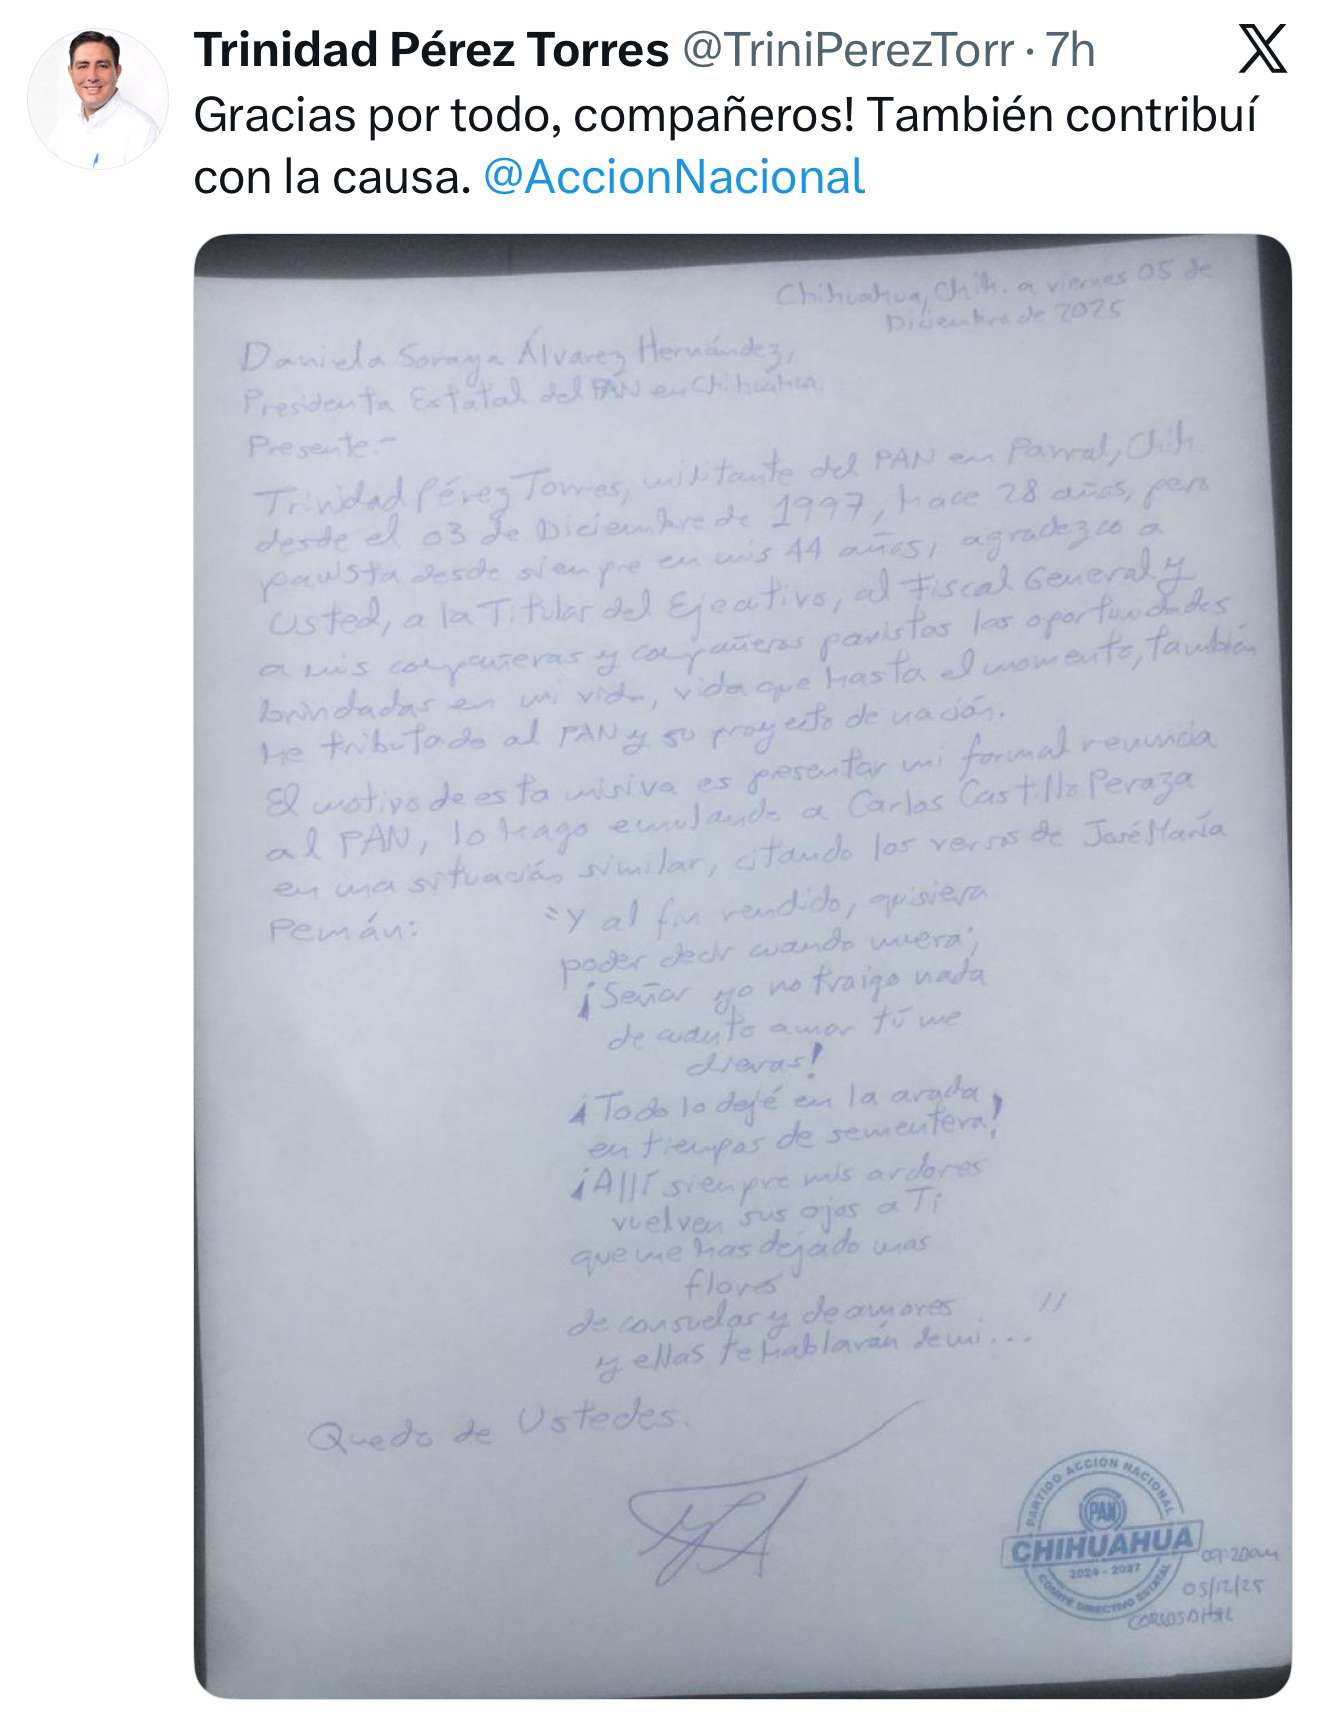 Trinidad Pérez Torres @TriniPerezTorr · 7h
Gracias por todo, compañeros! También contribuí
con la causa. @AccionNacional
Chihuahua, Chih. a viernes 05 de
Diciembre de 2025
Daniela Soraya Álvarez Hernández,
Presidenta Estatal del PAN en Chihuahua.
Presente.-
Trinidad Pérez Torres, militante del PAN en Parral, Chih.
desde el 03 de Diciembre de 1997, hace 28 años, pero
panista desde siempre en mis 44 años, agradezco a
Usted, a la Titular del Ejecutivo, al Fiscal General y
a mis compañeras y compañeros panistas las oportunidades
brindadas en mi vida, vida que hasta el momento, también
he tributado al PAN y su proyecto de nación.
El motivo de esta misiva es presentar mi formal renuncia
al PAN, lo hago emulando a Carlos Castillo Peraza
en una situación similar, citando los versos de José María
Pemán:
"Y al fin rendido, quisiera
poder decir cuando muera;
¡Señor yo no traigo nada
de cuanto amor tú me
dieras!
¡Todo lo dejé en la arada
en tiempos de sementera!
¡Allí siempre mis ardores
vuelven sus ojos a Ti
que me has dejado unas
flores
de consuelos y de amores
y ellas te hablarán de mi..."
Quedo de Ustedes.
PARTIDO ACCIÓN NACIONAL
PAN
CHIHUAHUA
2024 - 2027
COMITÉ DIRECTIVO ESTATAL
09:20am
05/12/25